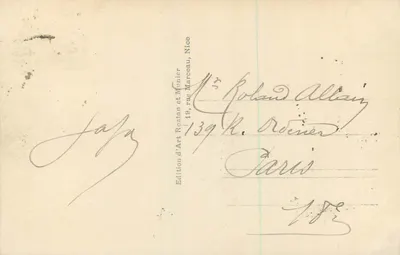 Papa
Edition d'Art Rostan et Munier
19, rue Marceau, Nice
Mr Roland Allain
139 R. Ordener
Paris
18e